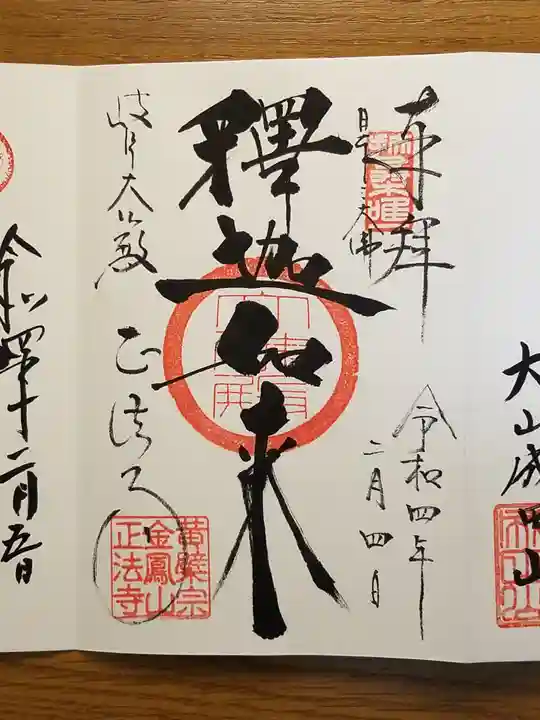 大山成田山
奉拝
日本三大佛
令和四年
二月四日
釋迦如来
岐阜大仏殿
正法寺
黄檗宗
金鳳山
正法寺
令和四年二月五日